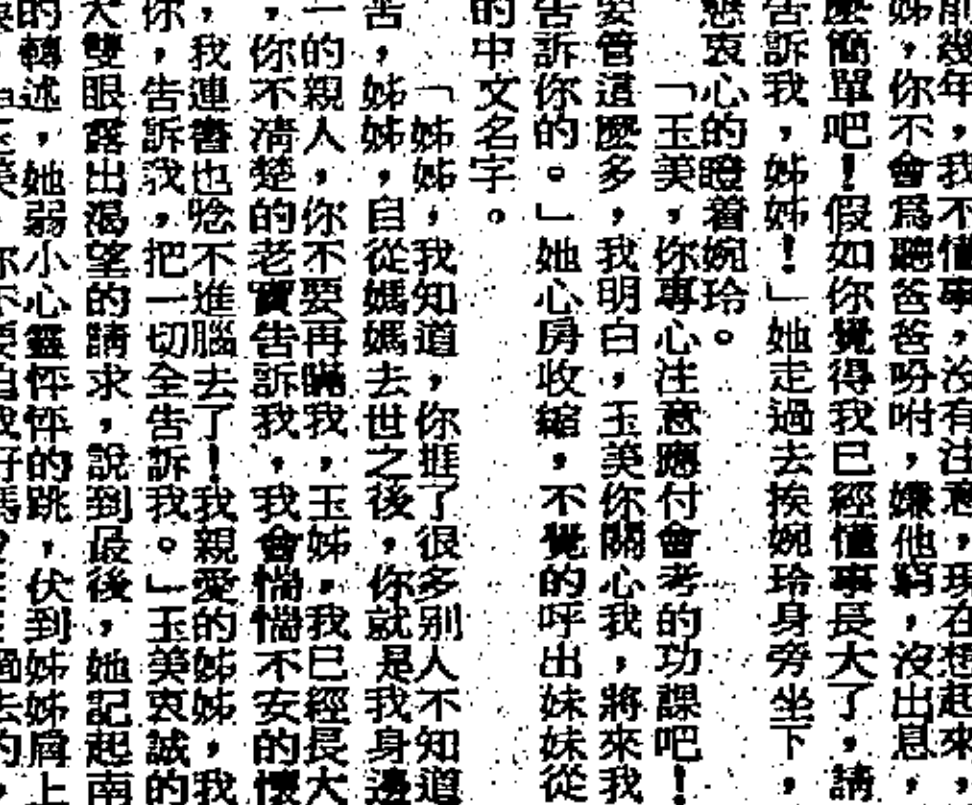 前幾年，我不懂事，沒有注意，現在想起來，
姊，你不會爲聽爸爸吩咐，嫌他窮，沒出息，
麼簡單吧！假如你覺得我已經懂事長大了，請
告訴我，姊姊！」她走過去挨婉玲身旁坐下，
懇衷心的瞪着婉玲。
「玉美，你專心注意應付會考的功課吧！
要管這麼多，我明白，玉美你關心我，將來我
告訴你的。」她心房收縮，不覺的呼出妹妹從
的中文名字。
「姊姊，我知道，你捱了很多別人不知道
苦，姊姊，自從媽媽去世之後，你就是我身邊
一的親人，你不要再瞞我，玉姊，我已經長大
，你不清楚的老實告訴我，我會惴惴不安的懷
，我連書也唸不進腦去了！我親愛的姊姊，我
你，告訴我，把一切全告訴我。」玉美衷誠的
大雙眼露出渴望的請求，說到最後，她記起南
的轉述，她弱小心靈怦怦的跳，伏到姊姊肩上